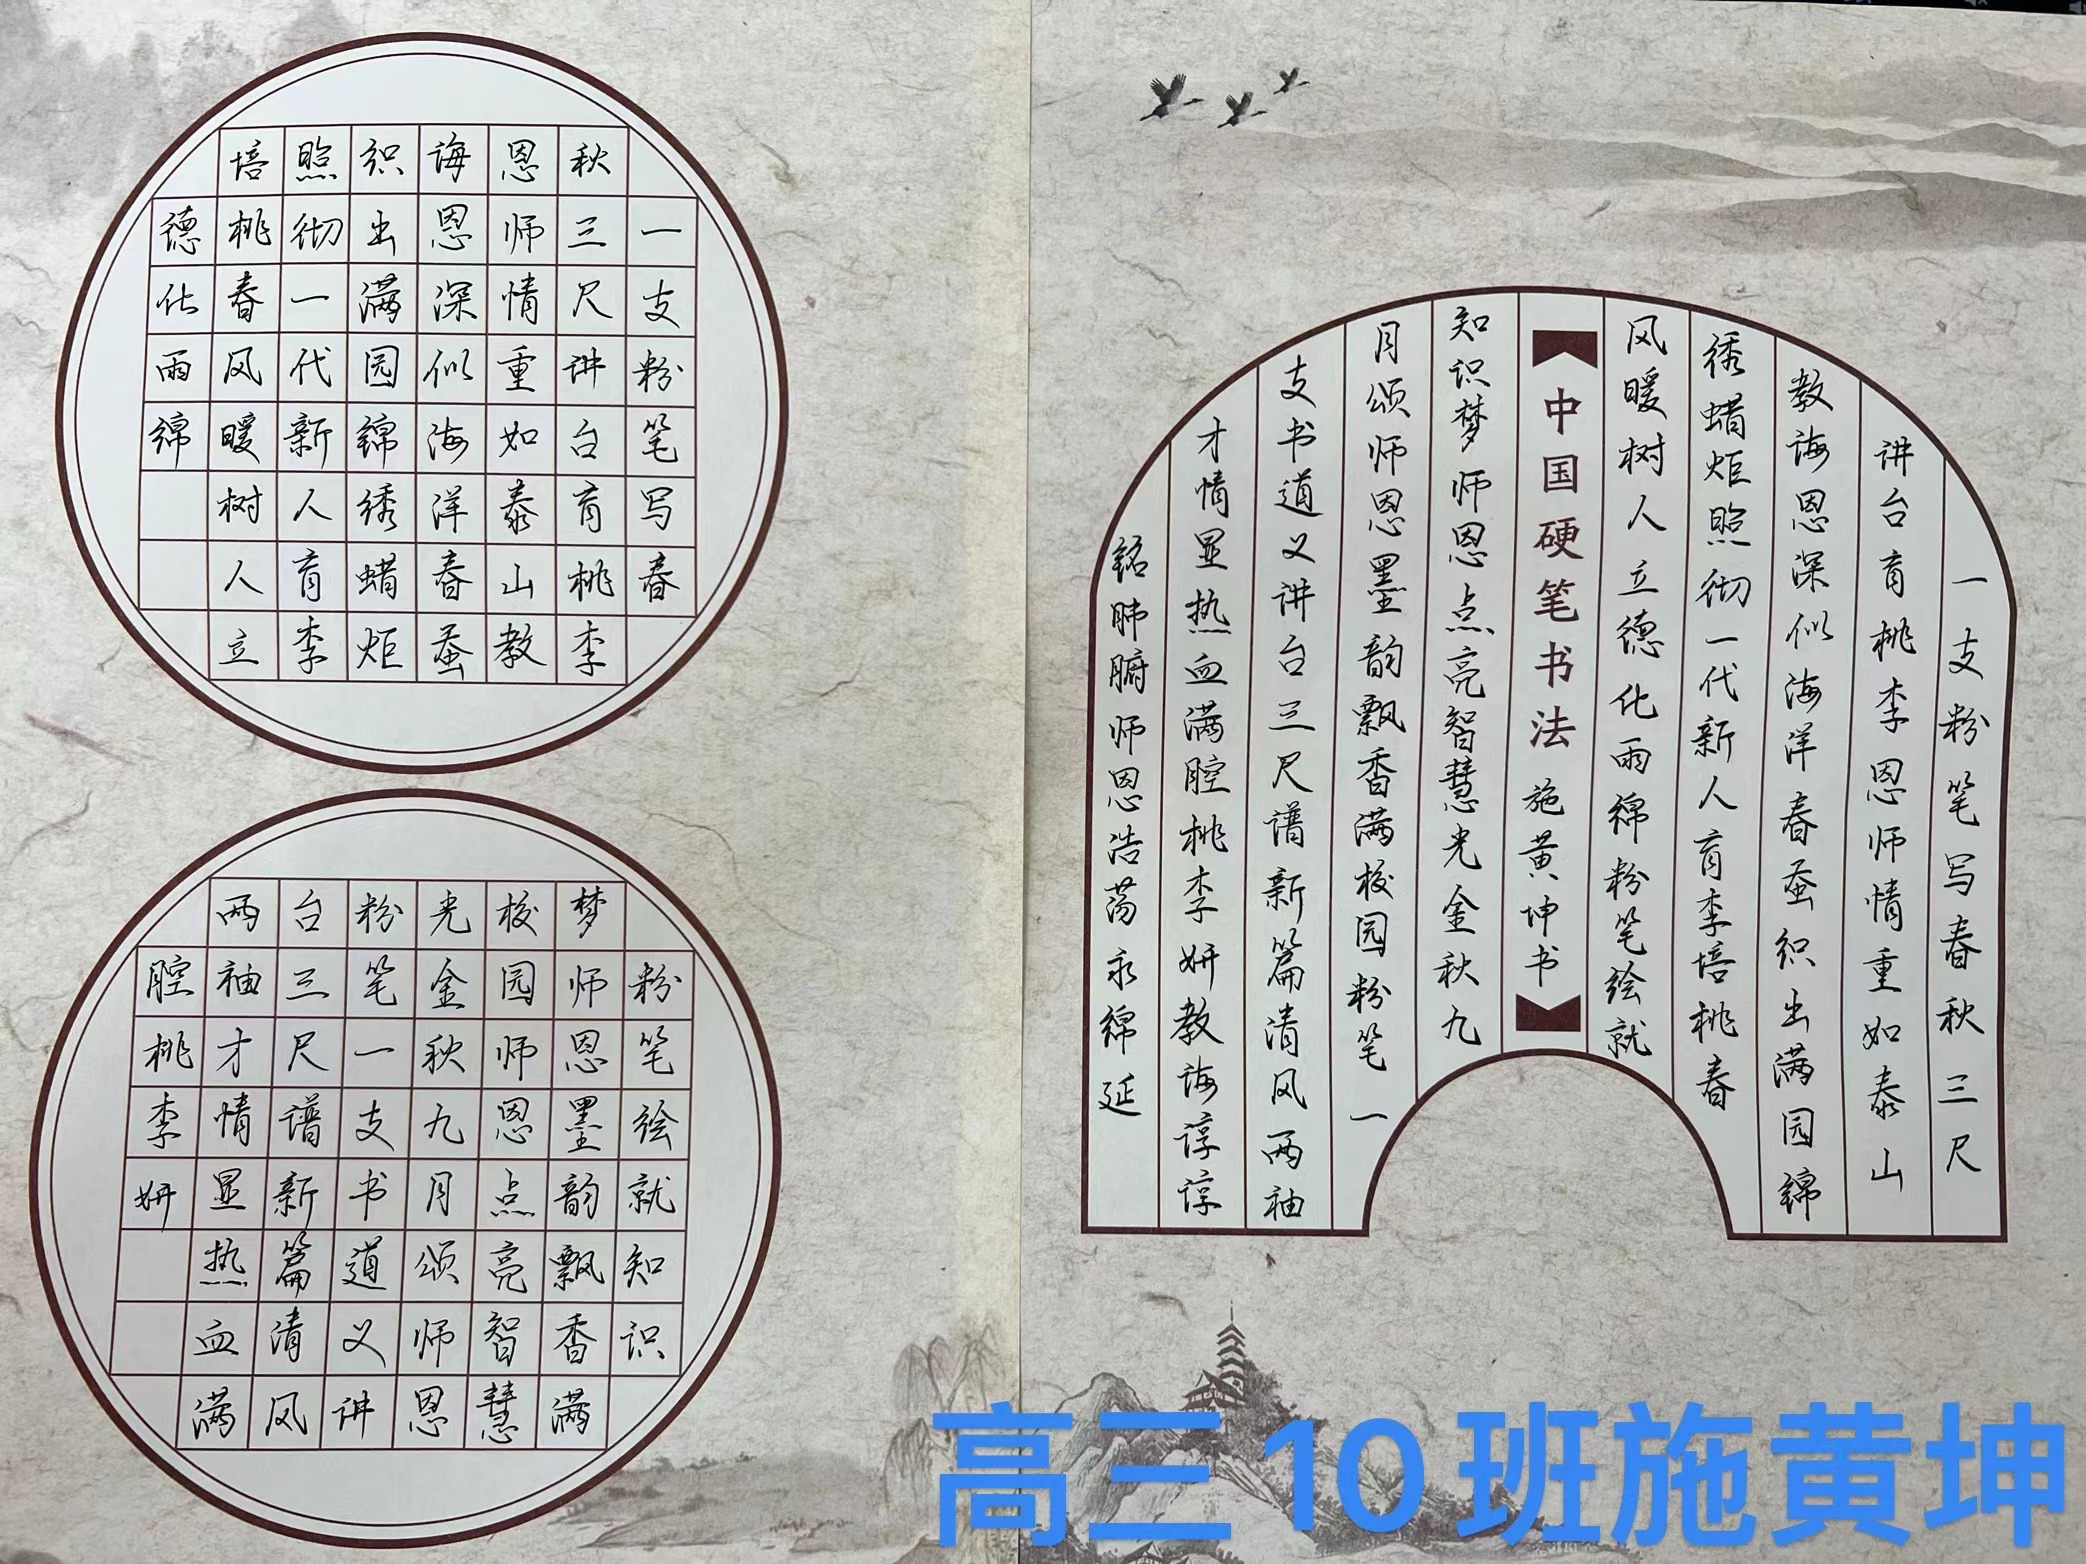 一支粉笔写春
秋三尺讲台育桃李
恩师情重如泰山教
诲恩深似海洋春蚕
织出满园锦绣蜡炬
照彻一代新人育李
培桃春风暖树人立
德化雨绵
粉笔绘就知识
梦师恩墨韵飘香满
校园师恩点亮智慧
光金秋九月颂师恩
粉笔一支书道义讲
台三尺谱新篇清风
两袖才情显热血满
腔桃李妍
一支粉笔写春秋三尺
讲台育桃李恩师情重如泰山
教诲恩深似海洋春蚕织出满园锦
绣蜡炬照彻一代新人育李培桃春
风暖树人立德化雨绵粉笔绘就
中国硬笔书法 施黄坤书
知识梦师恩点亮智慧光金秋九
月颂师恩墨韵飘香满校园粉笔一
支书道义讲台三尺谱新篇清风两袖
才情显热血满腔桃李妍教诲谆谆
铭肺腑师恩浩荡永绵延
高三10班施黄坤